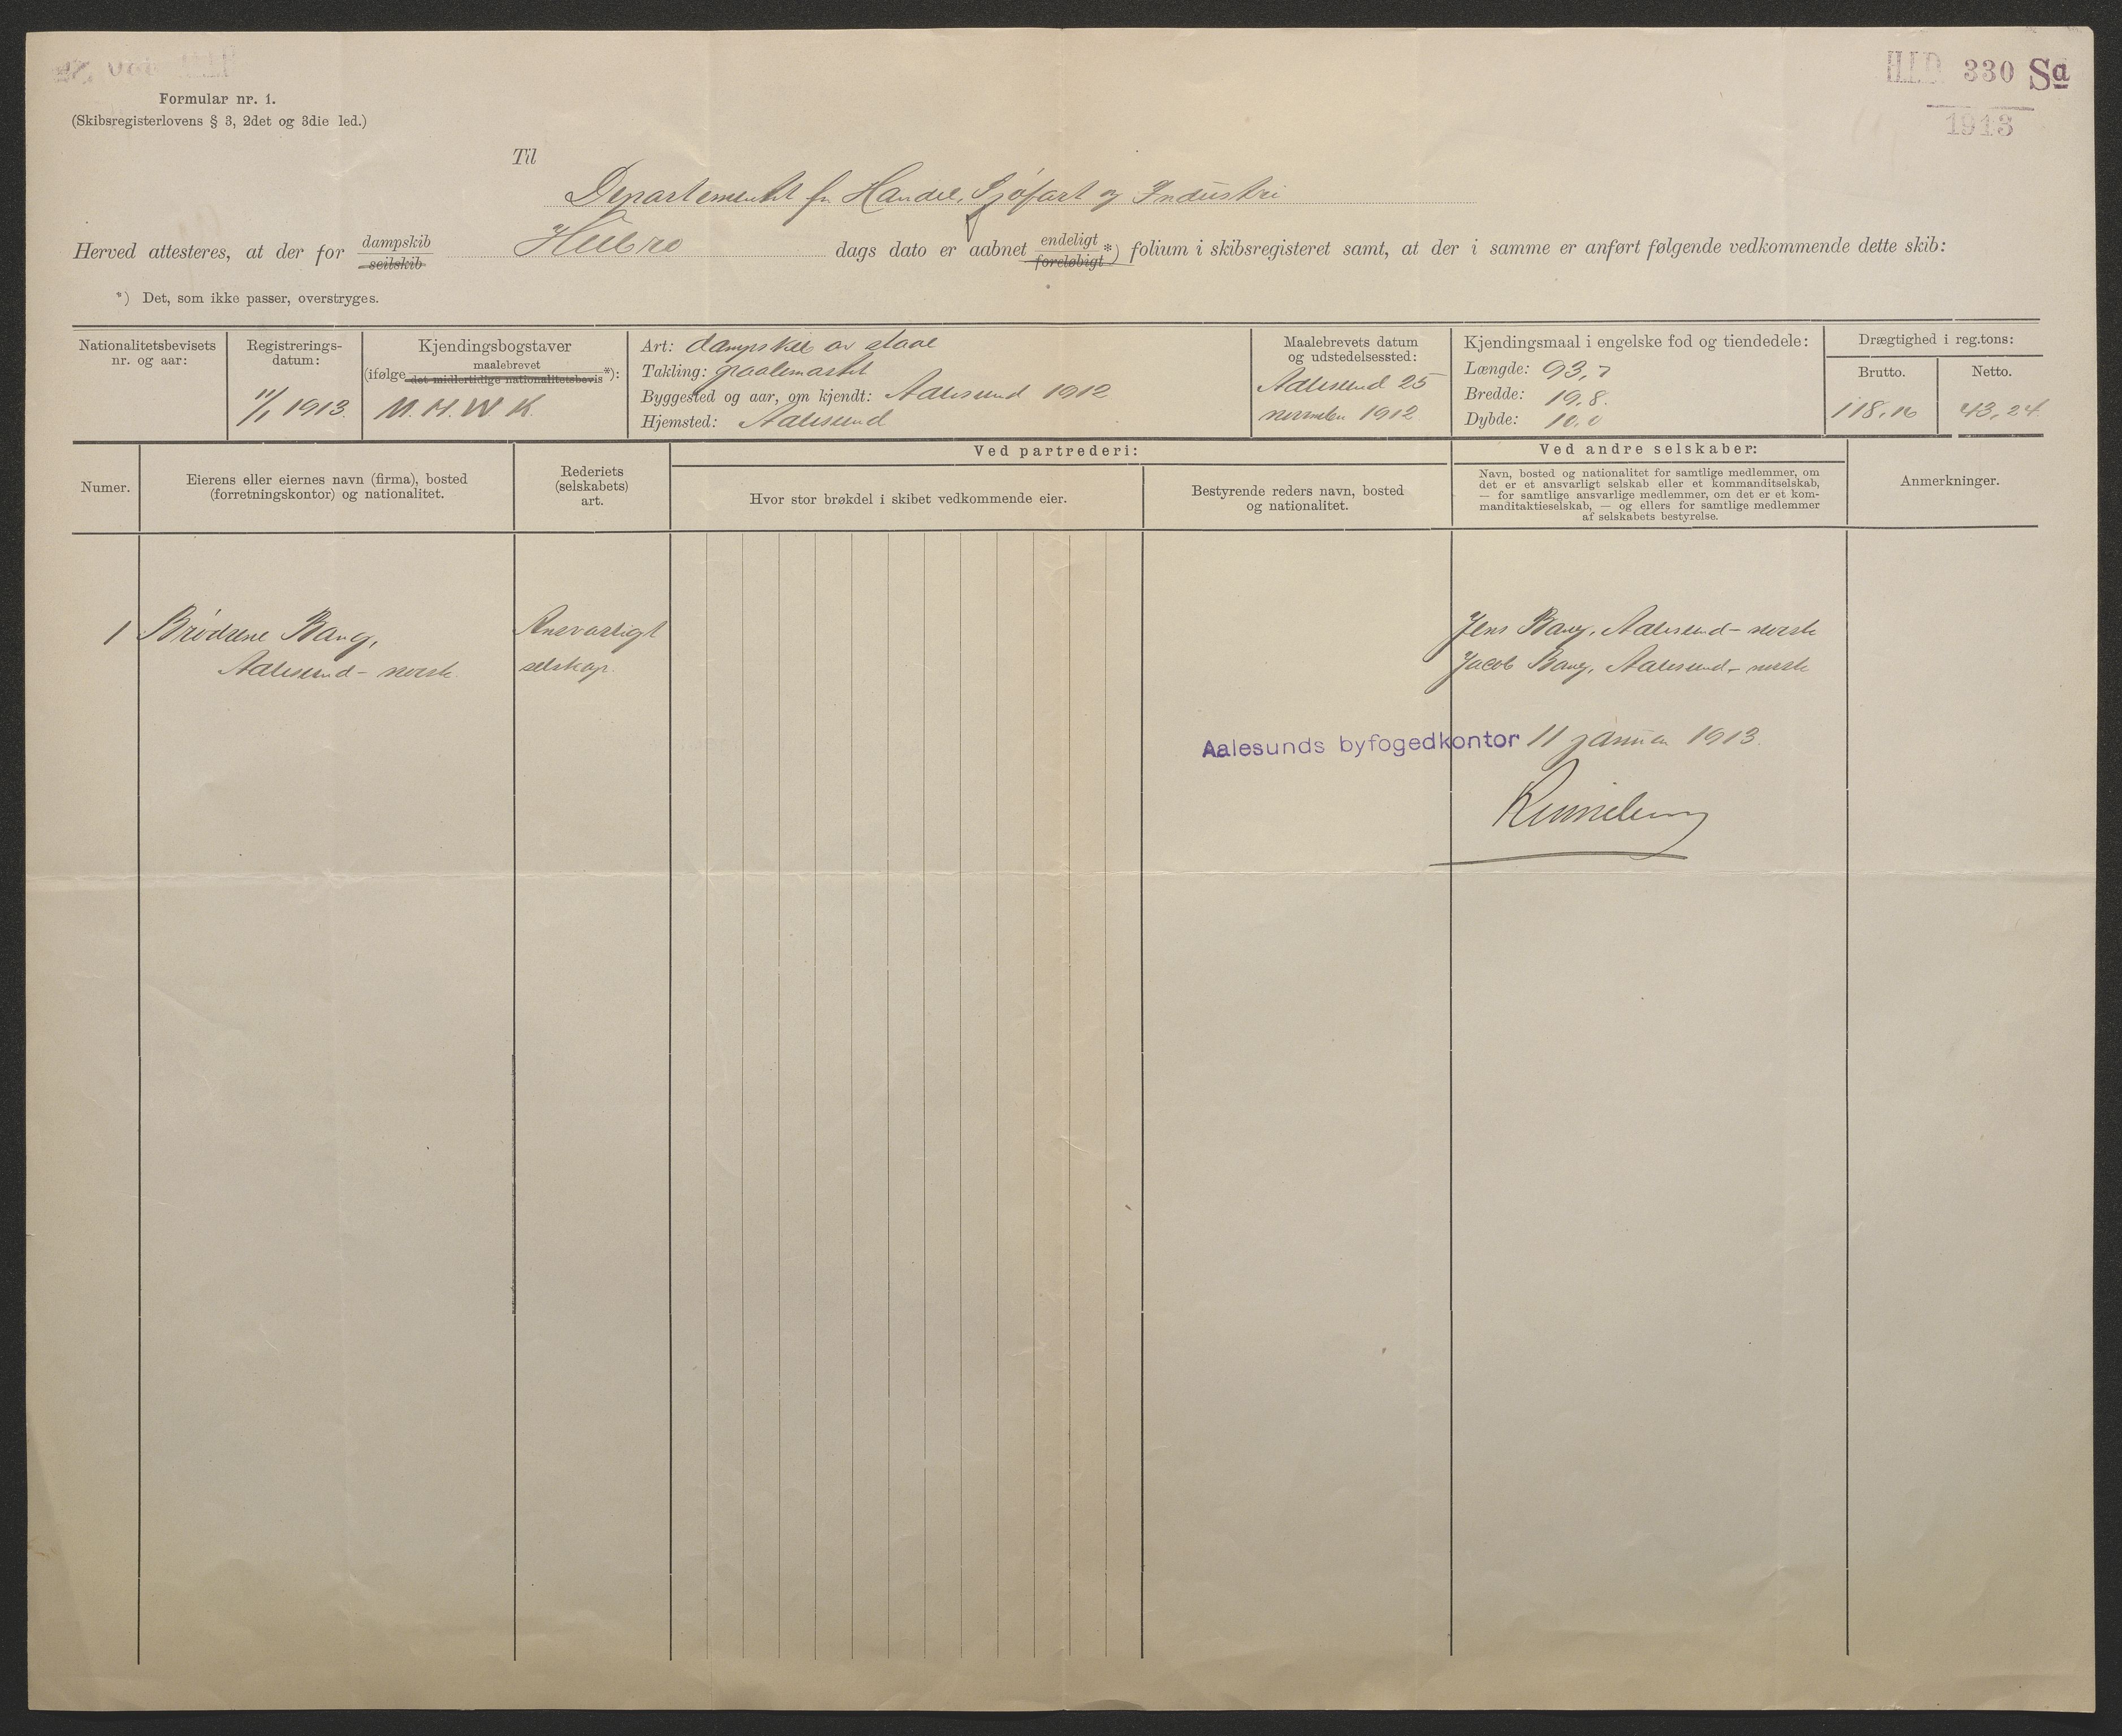 H.I.D. 330 Sa
1913
Formular nr. 1.
(Skibsregisterlovens § 3, 2det og 3die led.)
Til
Departementet for Handel, Sjøfart og Industri
Herved attesteres, at der for dampskib seilskib Hubro dags dato er aabnet endeligt foreløbigt *) folium i skibsregisteret samt, at der i samme er anført følgende vedkommende dette skib:
*) Det, som ikke passer, overstryges.
Nationalitetsbevisets nr. og aar:
Registrerings-datum:
11/1 1913.
Kjendingsbogstaver
(ifølge maalebrevet det midlertidige nationalitetsbevis *):
M. H. W. K.
Art: dampskib av staal
Takling: gaalemastet
Byggested og aar, om kjendt: Aalesund 1912
Hjemsted: Aalesund
Maalebrevets datum og udstedelsessted:
Aalesund 25
november 1912
Kjendingsmaal i engelske fod og tiendedele:
Længde: 93,7
Bredde: 19,8.
Dybde: 10,0
Drægtighed i reg.tons:
Brutto.
118,16
Netto.
43,24
Numer.
Eierens eller eiernes navn (firma), bosted
(forretningskontor) og nationalitet.
Rederiets
(selskabets)
art.
Ved partrederi:
Hvor stor brøkdel i skibet vedkommende eier.
Bestyrende reders navn, bosted
og nationalitet.
Ved andre selskaber:
Navn, bosted og nationalitet for samtlige medlemmer, om
det er et ansvarligt selskab eller et kommanditselskab,
— for samtlige ansvarlige medlemmer, om det er et kom-
manditaktieselskab, — og ellers for samtlige medlemmer
af selskabets bestyrelse.
Anmerkninger.
1 Brødrene Bang, Ansvarligt Jens Bang, Aalesund - norsk
Aalesund - norsk. selskap. Jacob Bang, Aalesund - norsk
Aalesunds byfogedkontor 11 januar 1913.